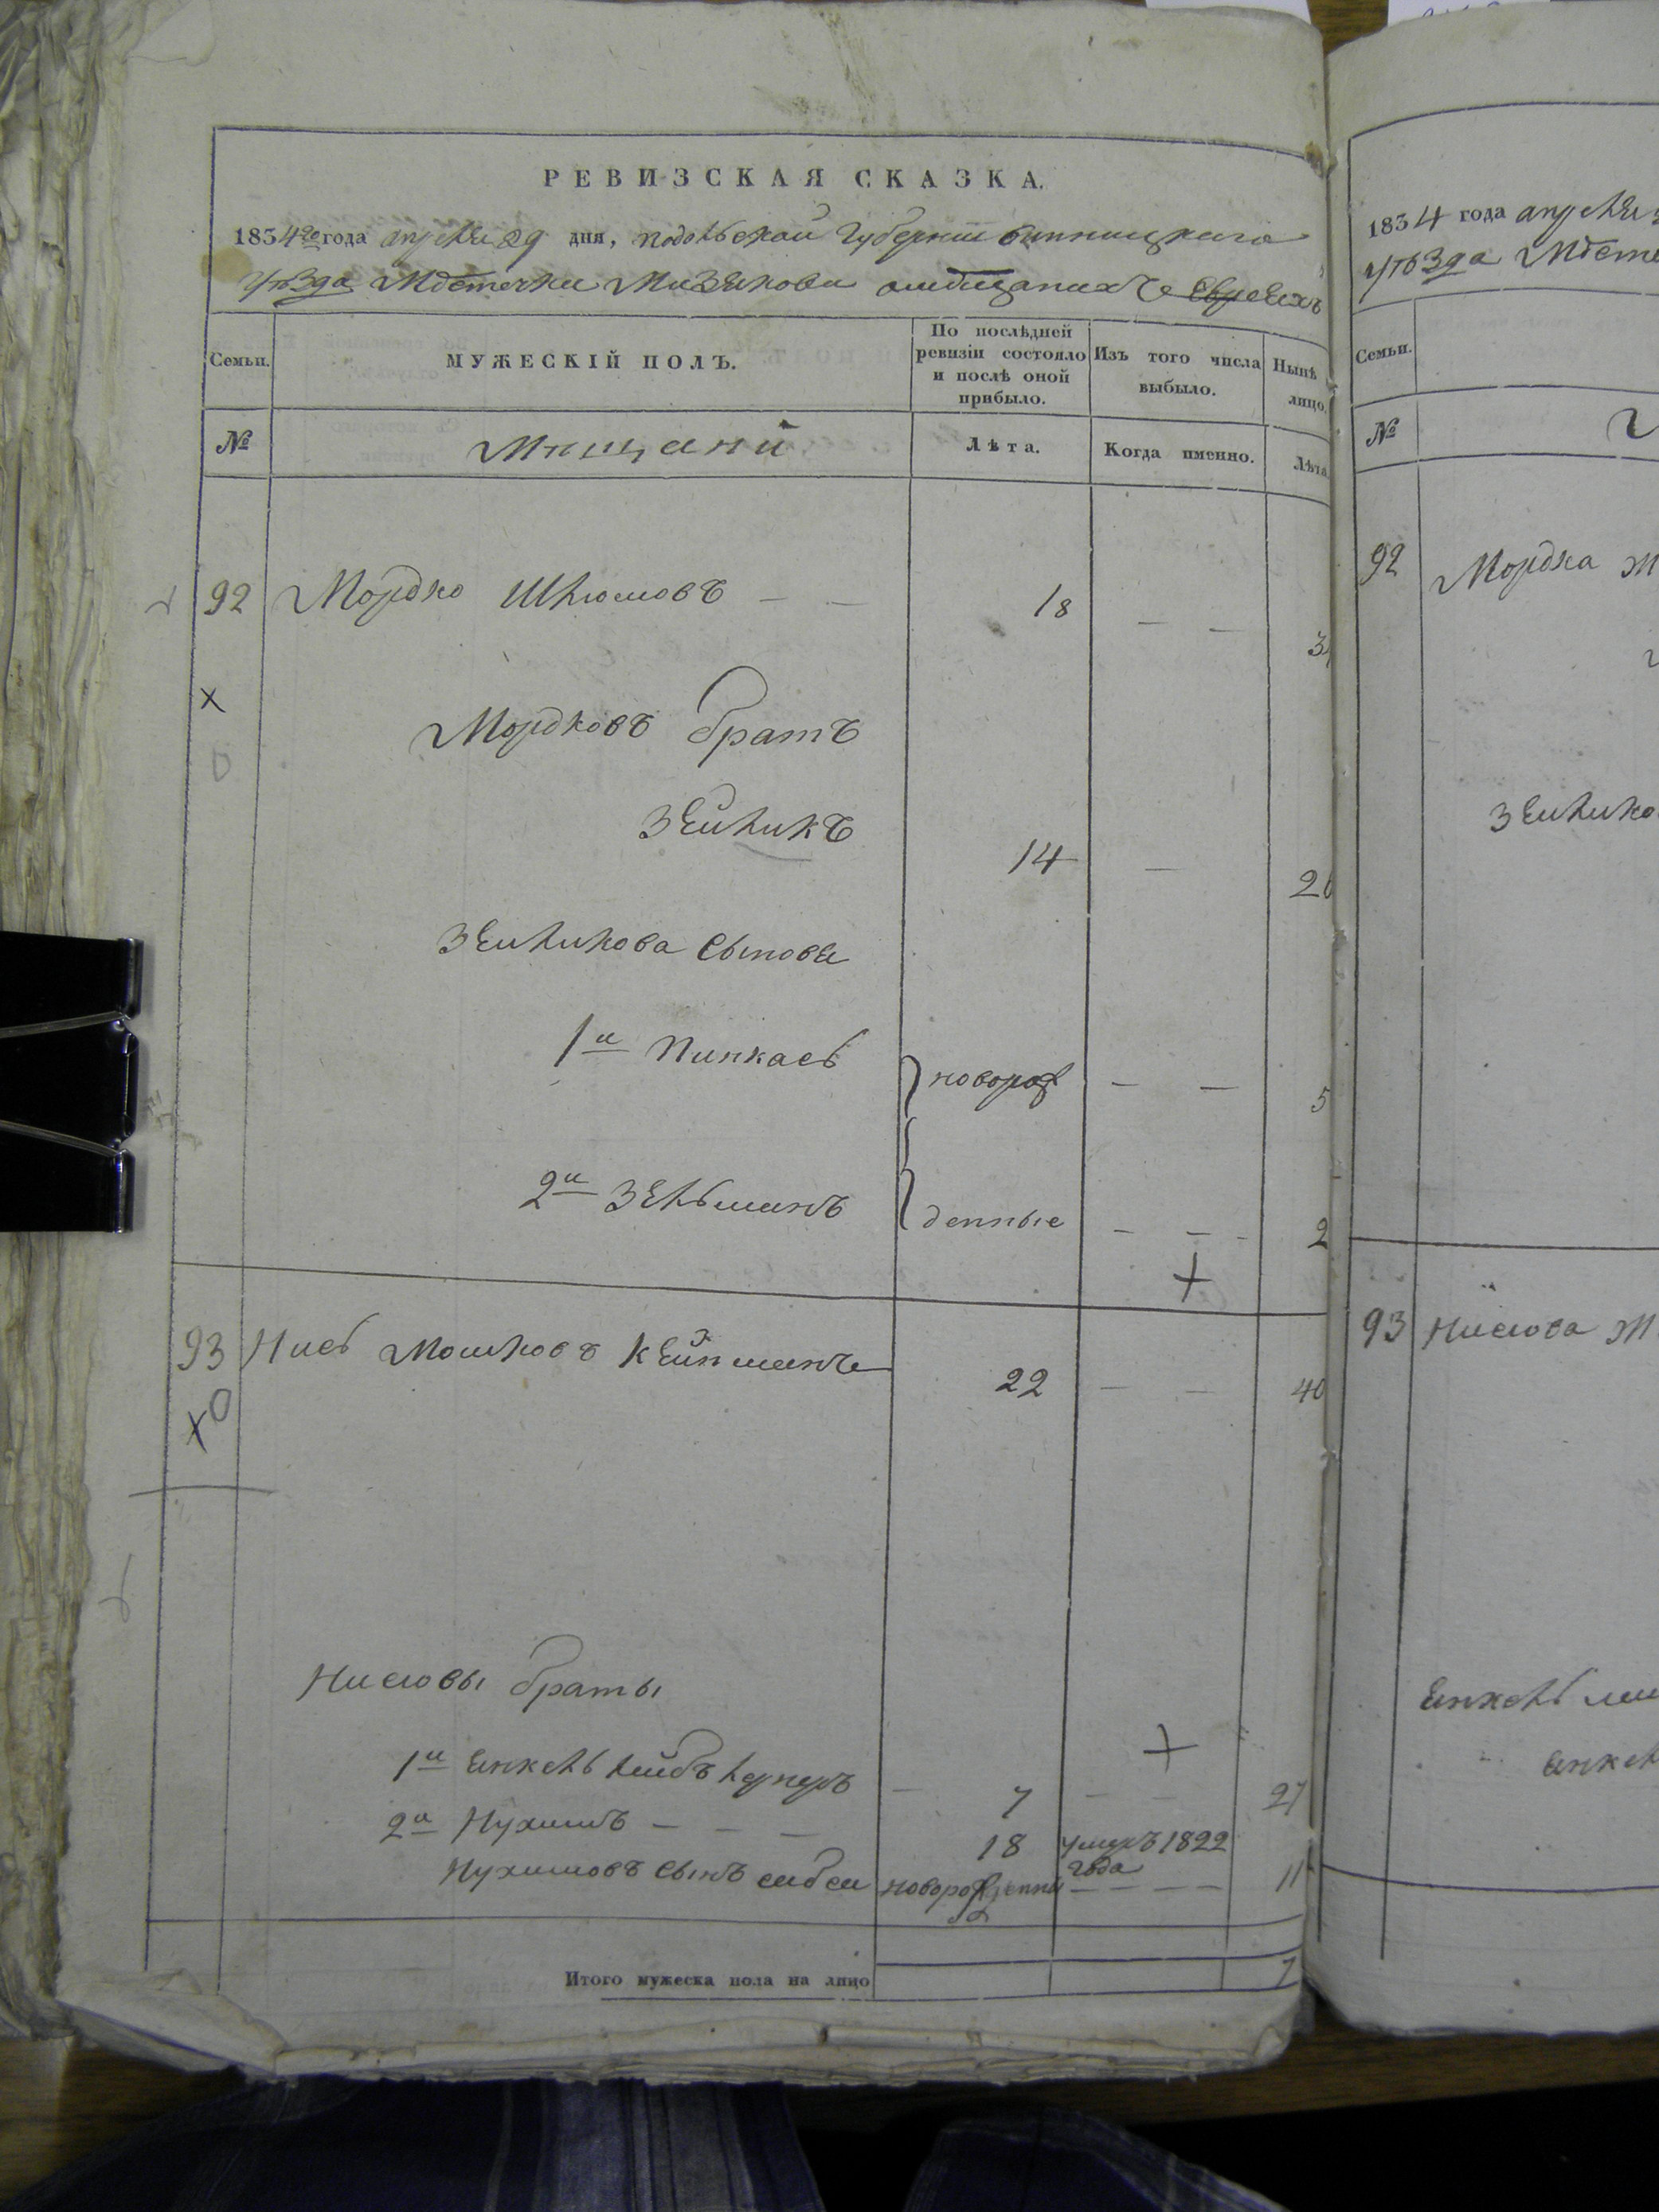 РЕВИЗСКАЯ СКАЗКА.
1834го года апреля 29 дня, Подольской Губернии Винницкаго
уѣзда Мѣстечка Мизякова омѣщанихъ Евреяхъ
Семьи.
МУЖЕСКІЙ ПОЛЪ.
По послѣдней ревизіи состояло и послѣ оной прибыло.
Изъ того числа выбыло.
Нынѣ лицо.
№
Мещани
Лѣта.
Когда именно.
Лѣта
92 Мордко Шлюмовъ — — 18 — — 3
Мордковъ братъ
Зейликъ 14 — 2
Зейликова Сынове
1й Пинкась новорож — — 5
2й Зельманъ денные — — 2
93 Нись Мошковъ Кейпманъ 22 — — 40
Нисовы браты
1й Янкель Лейбъ — 7 — — 27
2й Нухимъ — — — 18 умеръ 1822 года
Нухимовъ сынъ новорожденный — — — — 11
Итого мужеска пола на лицо 7
1834 года апреля
уѣзда Мѣсте
Семьи.
№
92 Мордка ж
Зейлико
93 Нисова ж
Янкель
Янкел